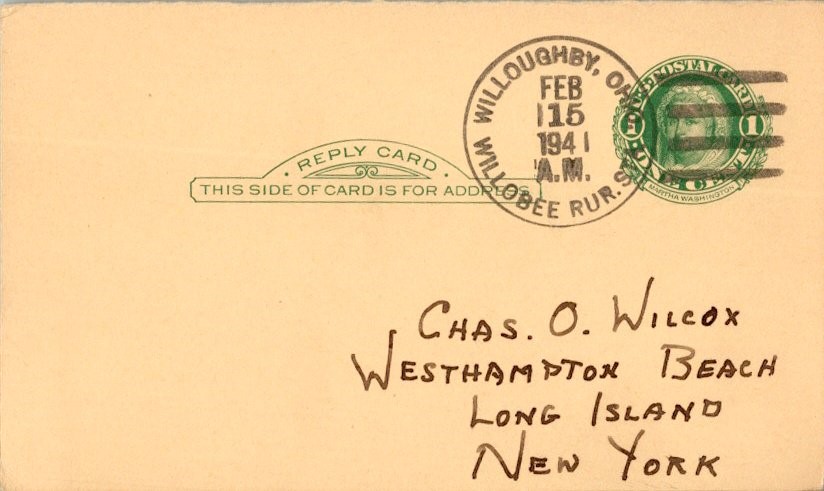 WILLOUGHBY, OHIO
FEB
15
1941
A.M.
WILLOBEE RUR. S
U.S. POSTAL CARD
1 1
ONE CENT
MARTHA WASHINGTON
REPLY CARD
THIS SIDE OF CARD IS FOR ADDRESS
CHAS. O. WILCOX
WESTHAMPTON BEACH
LONG ISLAND
NEW YORK